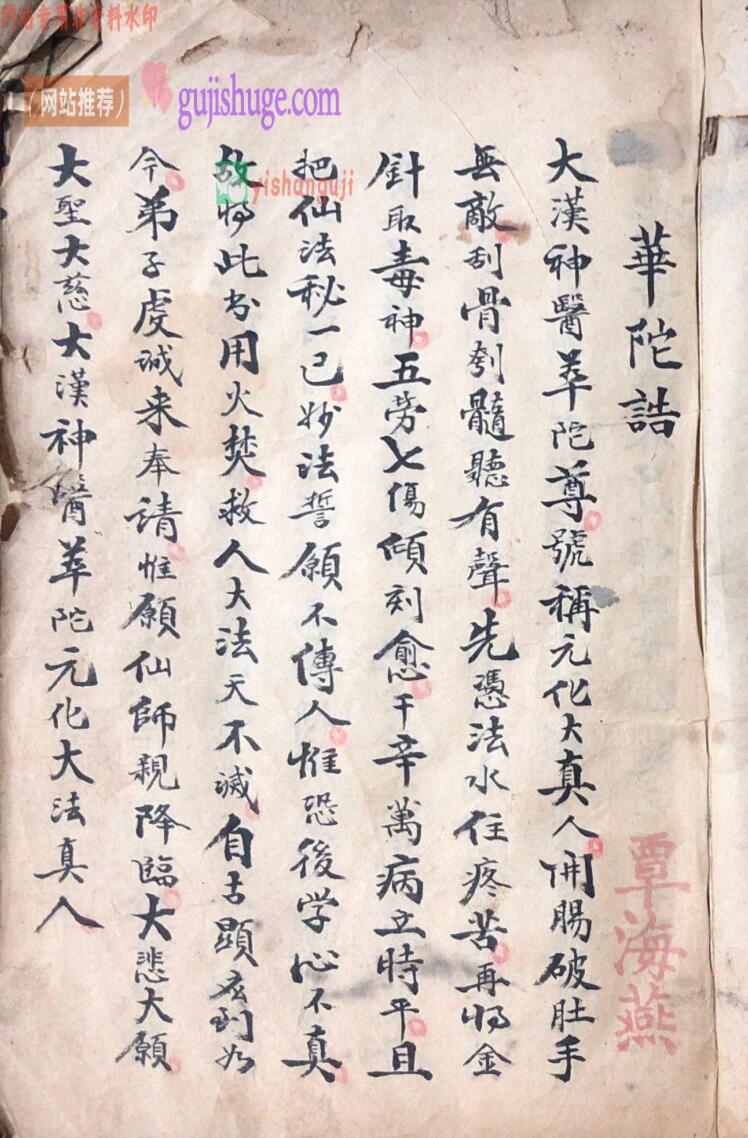 网站专用非资料水印
(网站推荐)
gujishuge.com
yishanguji
華陀誥
大漢神醫華陀尊號稱元化大真人開腸破肚手
無敵刮骨刳髓聽有聲先憑法水住疼苦再將金
針取毒神五劳七傷傾刻愈千辛萬病立時平且
把仙法秘一己妙法誓願不傳人惟恐後学心不真
故將此书用火焚救人大法天不滅自古顯玄到如
今弟子虔誠来奉請惟願仙師親降臨大悲大願
大聖大慈大漢神醫華陀元化大法真人
覃海燕